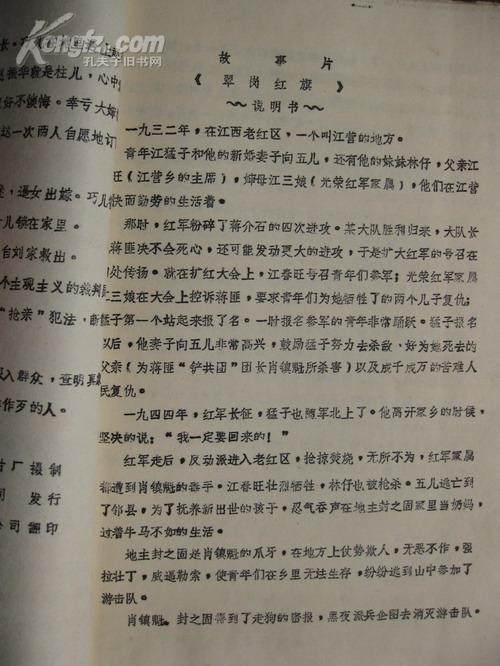 Kongfz.com
孔夫子旧书网
故事片
《翠岗红旗》
～说明书～
一九三二年，在江西老红区，一个叫江营的地方。
青年江猛子和他的新婚妻子向五儿，还有他的妹妹林仔，父亲江
旺（江营乡的主席），婶母江三娘（光荣红军家属），他们在江营
快而勤劳的生活着。
那时，红军粉碎了蒋介石的四次进攻。某大队胜利归来，大队长
蒋匪决不会死心，还可能发动更大的进攻，于是扩大红军的号召在
处传扬。就在扩红大会上，江春旺号召青年们参军；光荣红军家属
三娘在大会上控诉蒋匪，要求青年们为她牺牲了的两个儿子复仇；
猛子第一个站起来报了名。一时报名参军的青年非常踊跃。猛子报名
以后，他妻子向五儿非常高兴，鼓励猛子努力去杀敌、好为她死去的
父亲（为蒋匪“铲共团”团长肖镇魁所杀害）以及成千成万的苦难人
民复仇。
一九四四年，红军长征，猛子也随军北上了。他离开家乡的时候，
坚决的说：“我一定要回来的！”
红军走后，反动派进入老红区，抢掠焚烧，无所不为，红军家属
都遭到肖镇魁的毒手。江春旺壮烈牺牲，林仔也被枪杀。五儿逃亡到
了邻县，为了抚养新出世的孩子，忍气吞声在地主封之固家里当奶妈，
过着牛马不如的生活。
地主封之固是肖镇魁的爪牙，在地方上仗势欺人，无恶不作，强
拉壮丁，威逼勒索，使青年们在乡里无法生存，纷纷逃到山中参加了
游击队。
肖镇魁、封之固得到了走狗的密报，黑夜派兵企图去消灭游击队。
心中
好不懊悔。幸亏大婶
这一次两人自愿地订
，逼女出嫁。巧儿
儿锁在家里。
自刘家救出。
个主观主义的裁判
“抢亲”犯法，断
深入群众，查明真
作歹的人。
片厂摄制
司 发行
公司翻印